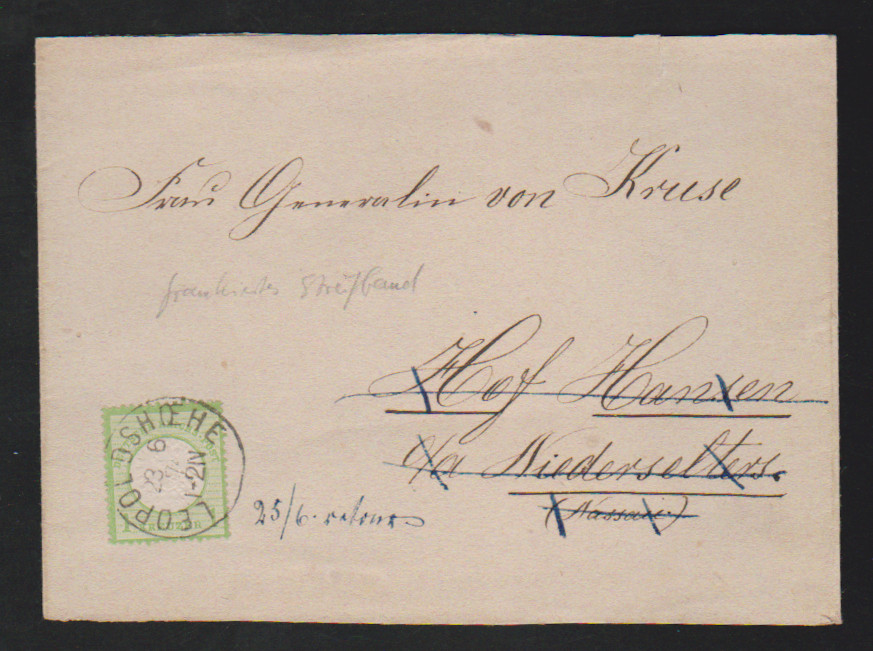 Frau Generalin von Kruse
frankiertes Streifband
Hof Hausen
p/a Niederselters.
(Nassau)
LEOPOLDSHOEHE
23 6
1-2N
25/6. retour